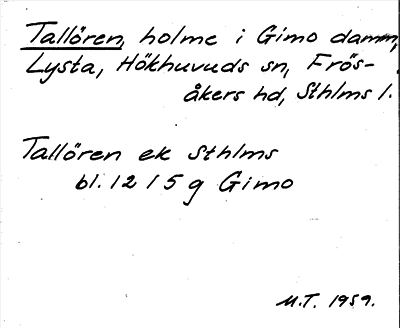 Tallören, holme i Gimo damm,
Lysta, Hökhuvuds sn, Frös-
åkers hd, Sthlms l.
Tallören ek Sthlms
bl. 12 I 5 g Gimo
M.T. 1959.